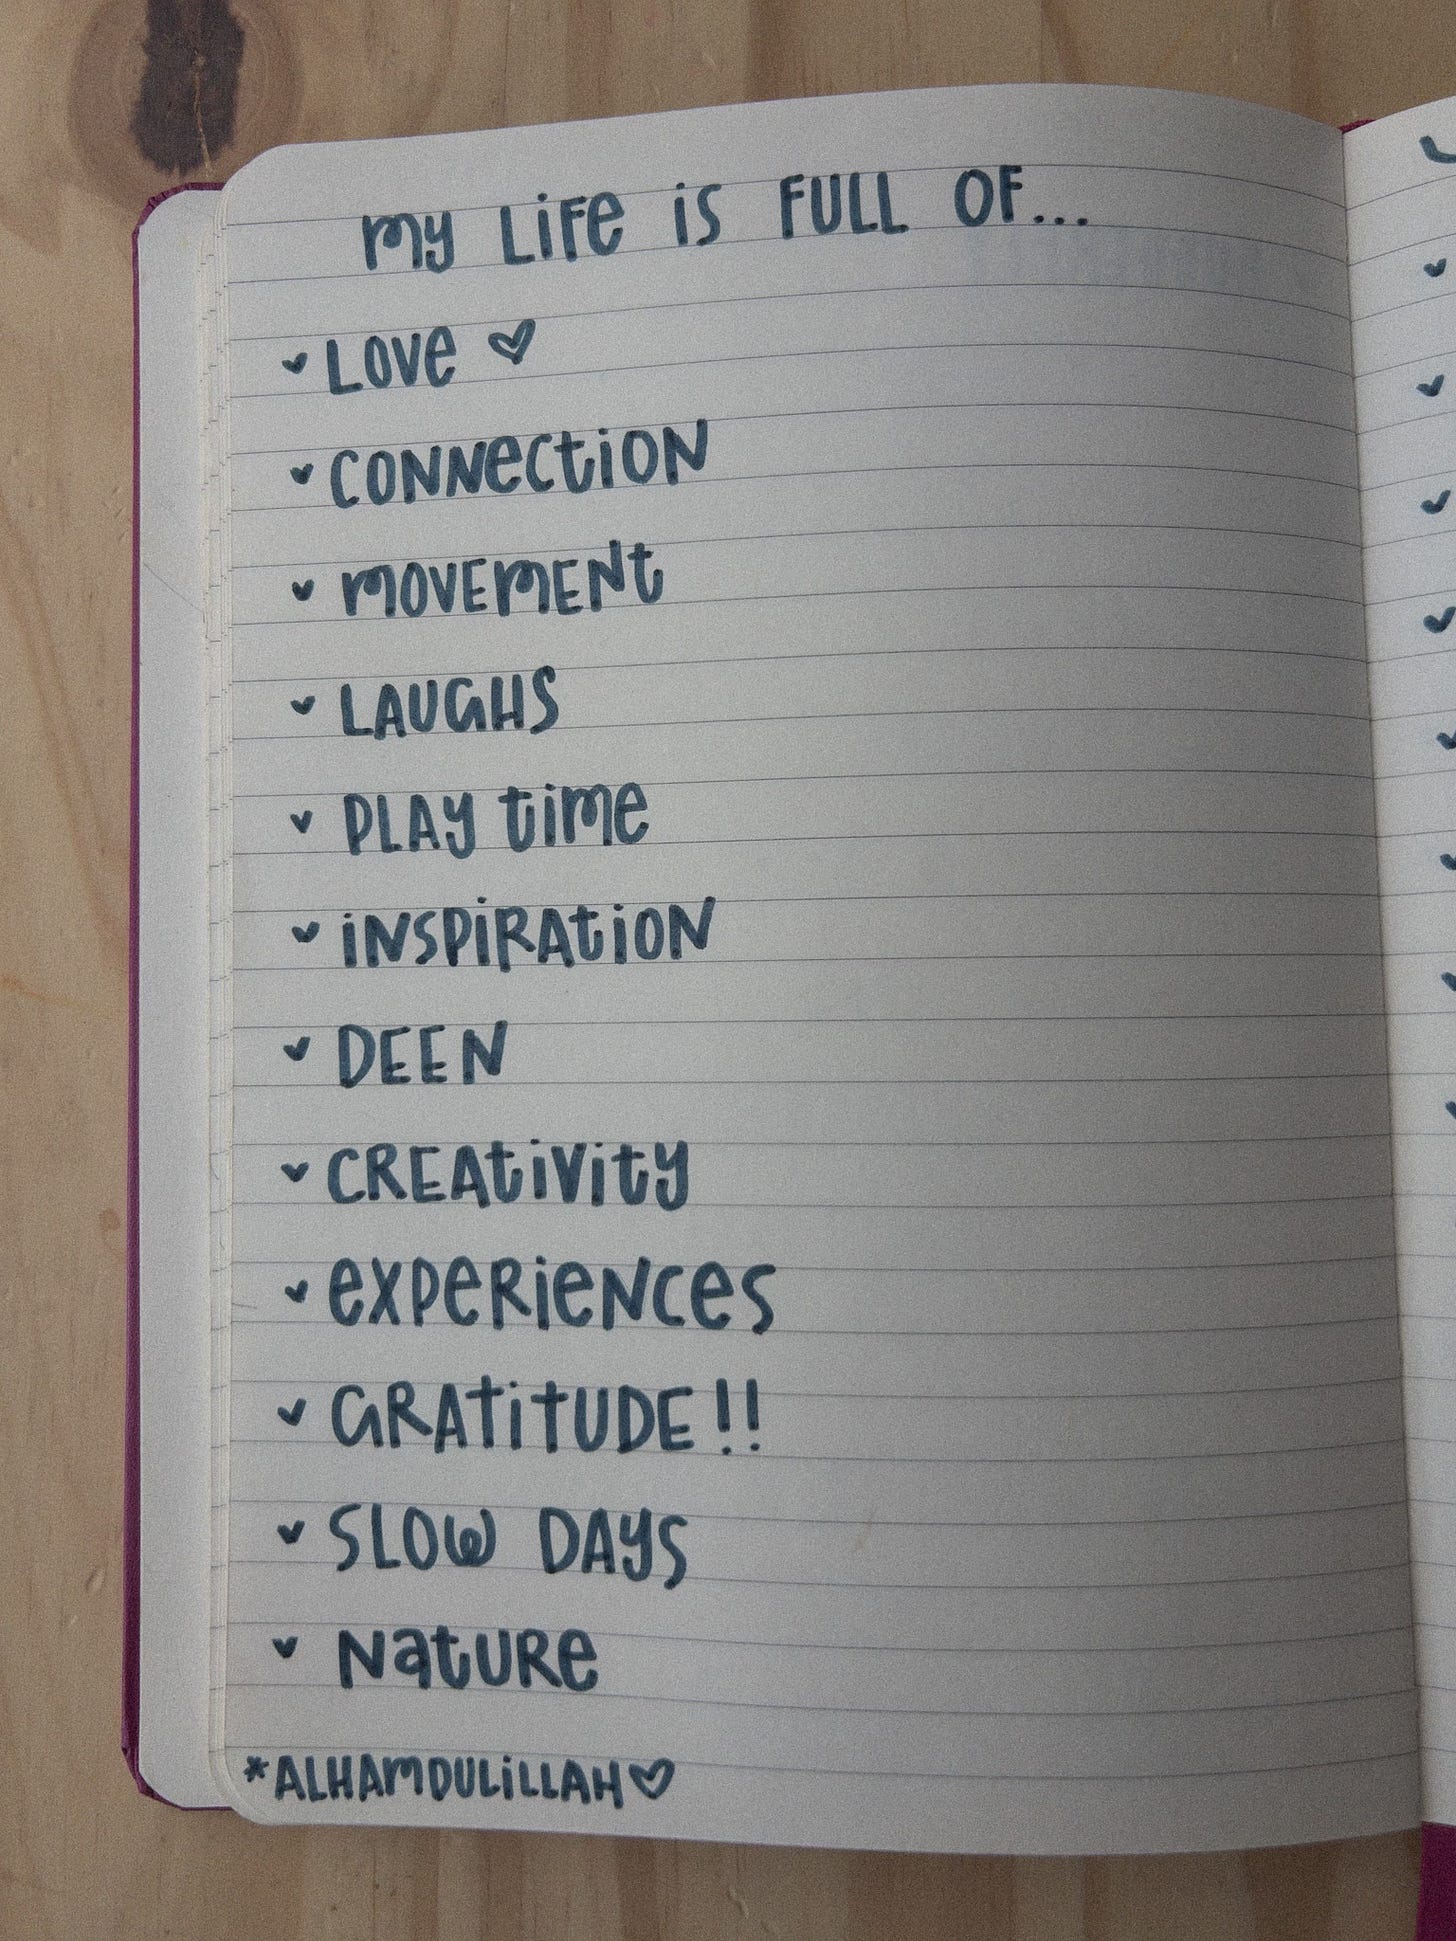 My LiFe is FULL OF...
LOVe ♡
CONNeCtiON
MOVEMENt
LAUGHS
PLAY time
iNSPiRAtiON
DEEN
CREAtiVity
exPeRieNCes
GRAtitUDE!!
SLOW DAYS
NatURe
*ALHAMDULiLLAH♡